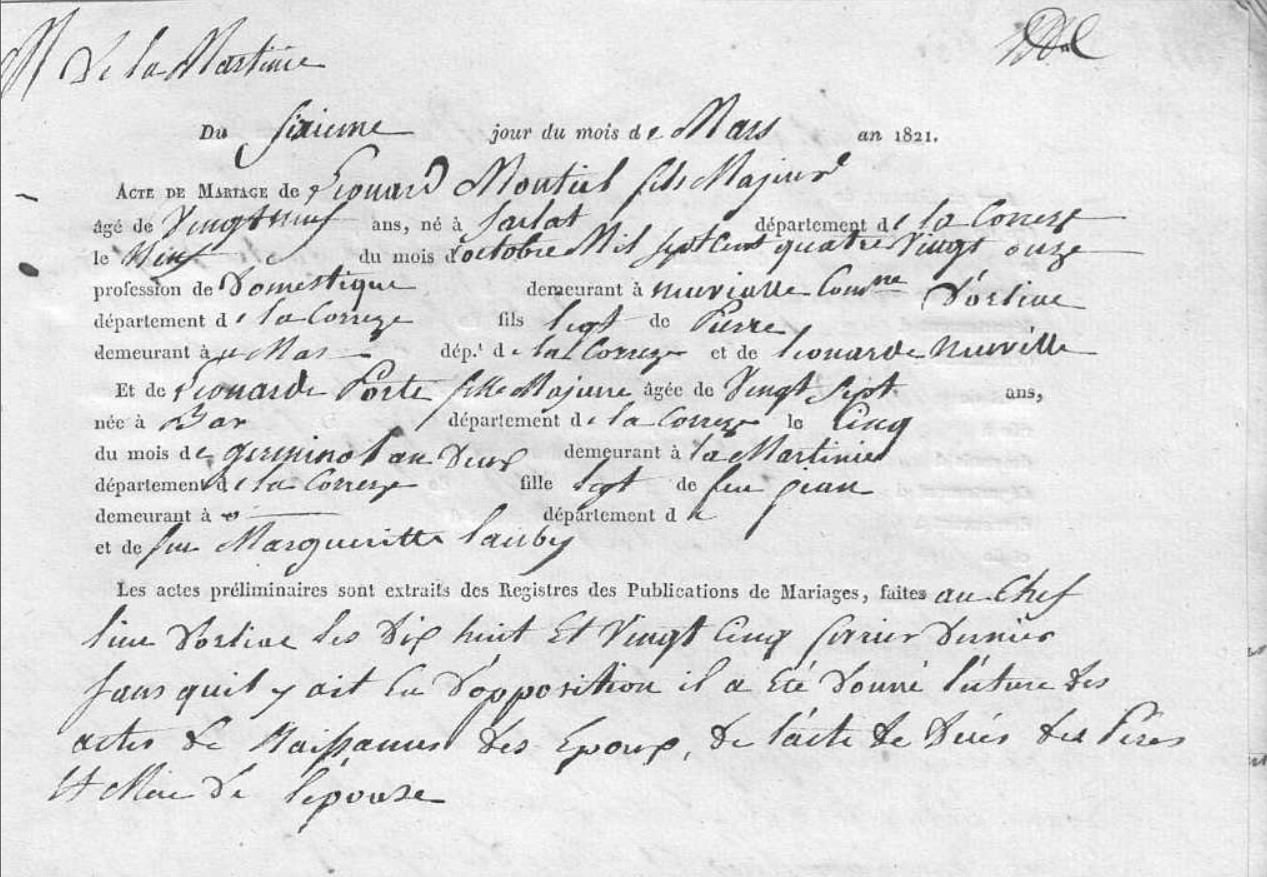 M De la Martinie
Du Sixieme jour du mois de Mars an 1821.
ACTE DE MARIAGE de Leonard Montiel fils Majeur
âgé de Vingt neuf ans, né à Sarlat département de la Correze
le Neuf du mois d'octobre Mil sept cent quatre Vingt onze
profession de Domestique demeurant à Comne D'orliac
département de la Correze fils legt de Pierre
demeurant à Mas dép.t de la Correze et de leonarde Neuville
Et de Leonarde Porte fille Majeure âgée de Vingt Sept ans,
née à Bar département de la Correze le Cinq
du mois de germinal an Deux demeurant à la Martinie
département de la Correze fille legt de feu jean
demeurant à département d
et de feu Margueritte lauby
Les actes préliminaires sont extraits des Registres des Publications de Mariages, faites au Chef
lieu D'orliac les Dix huit Et Vingt Cinq fevrier Dernier
Sans quil y ait Eu D'opposition il a Eté Donné lecture des
actes de Naissances des Epoux, de l'acte de Deces des Peres
Et Mere de l'epouse